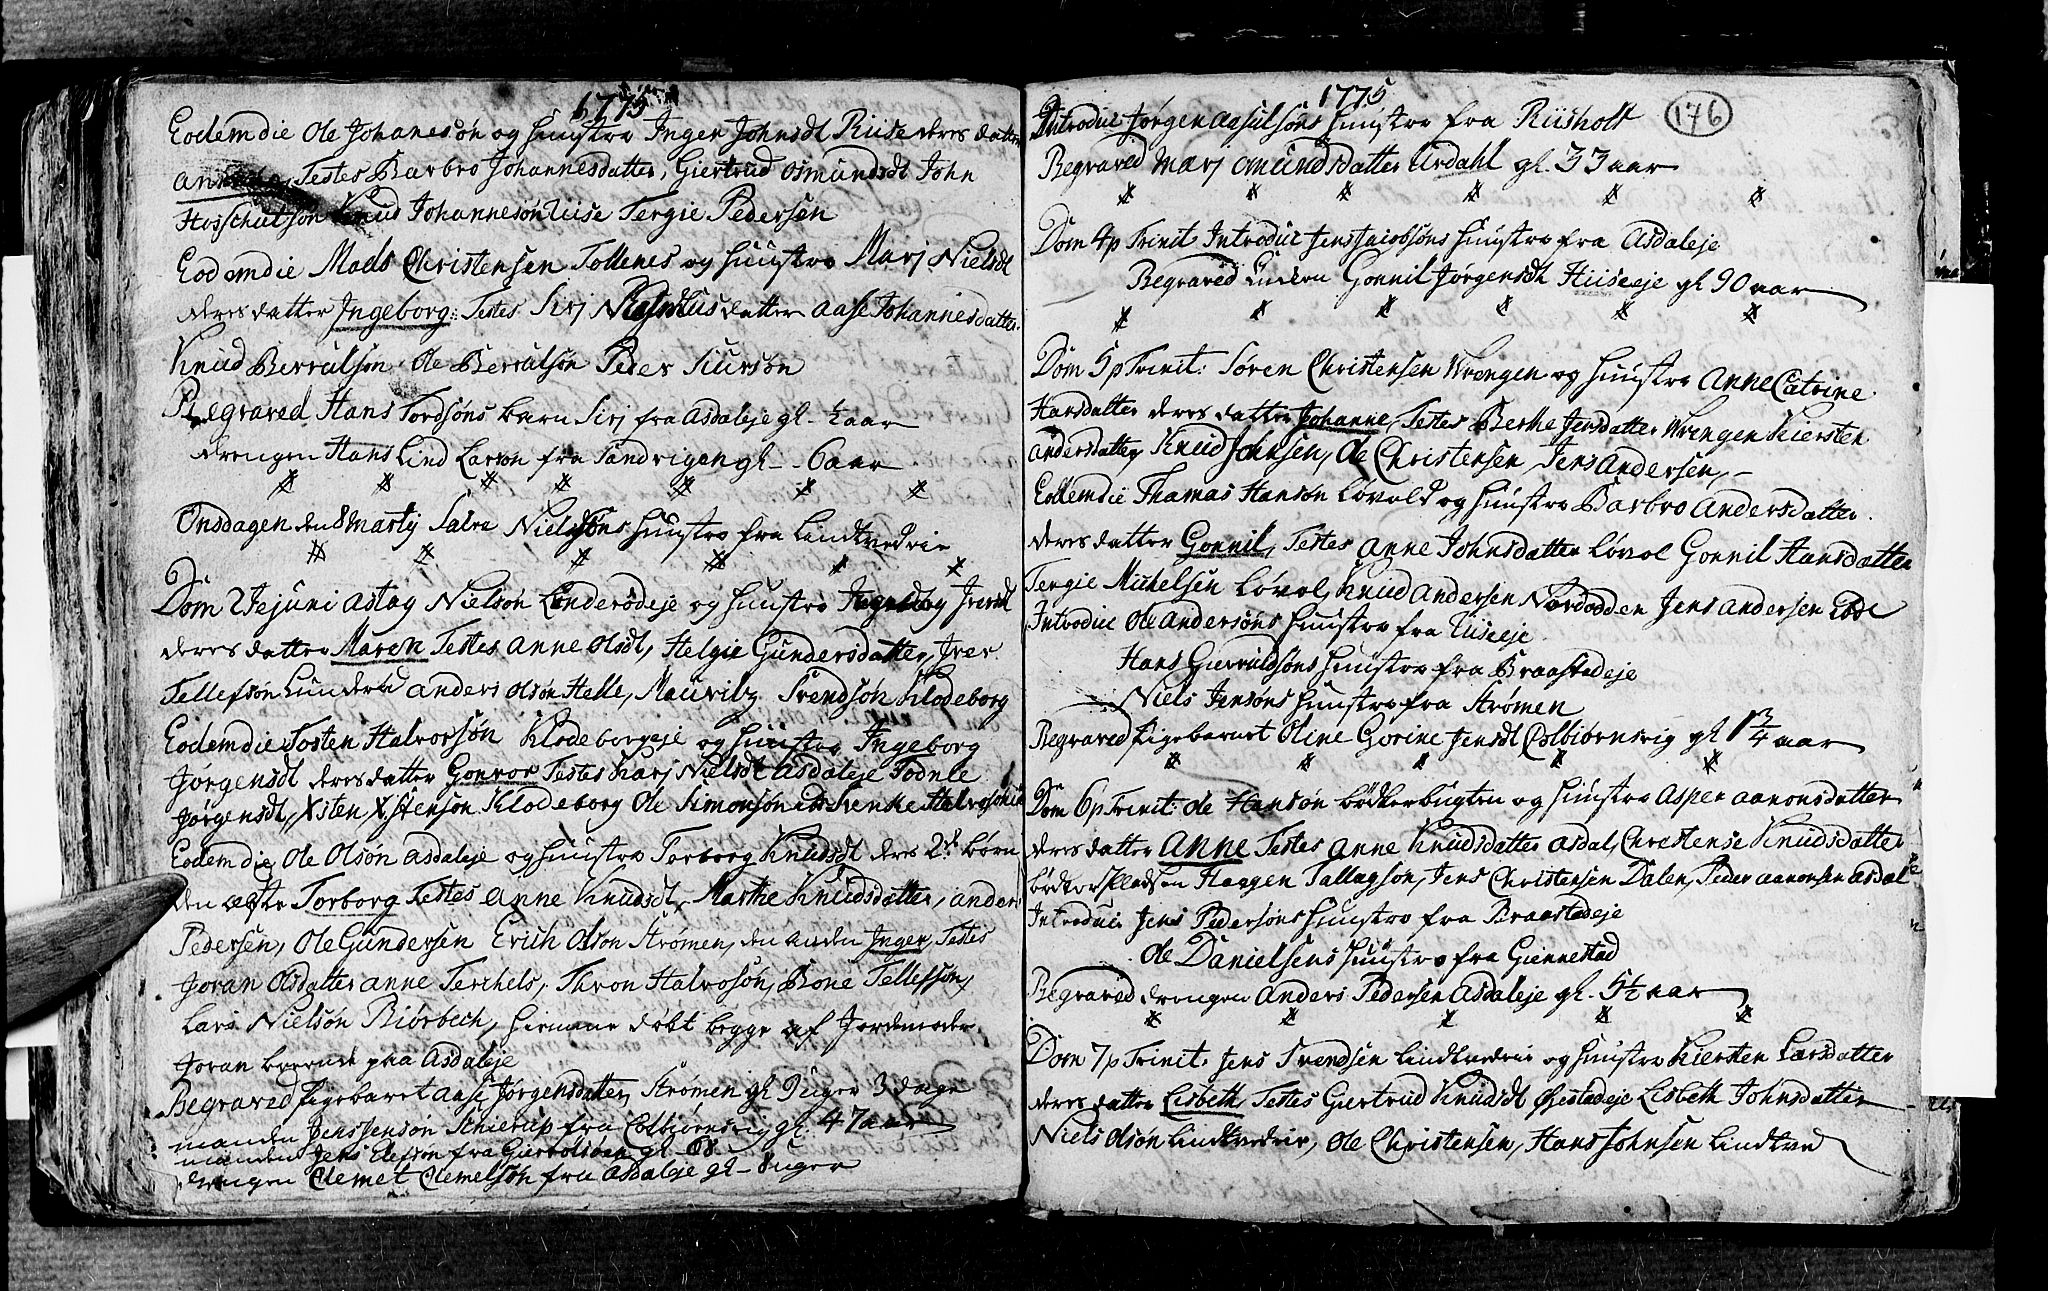 1775
Eodem die Ole Johanesøn og Hustro Inger Johnsdt Riise deres datter
Testes Barbro Johannesdatter, Giertrud Osmundsdt John
Knud Johannesøn Riise Tergie Pedersen
Eodem die Mads Christensen Tollenes og Hustro Marj Nielsdt
deres datter Ingeborg: Testes Sirj datter Aase Johannesdatter.
Knud Berrulsøn. Ole Berrulsøn Peder Siursøn
Begraved Hans Tordsøns barn Sirj fra Asdaleje gl. ½ aar
drengen Hans Lind Larson fra Sandvigen gl - 6 aar
Onsdagen den 8 Martij Salve Nielsøns Hustro fra Lindtvedrie
Dom 2 Jejuni Aslag Nielsøn Londerødeje og Hustro Ingeborg Iversdt
deres datter Maren Testes Anne Olsdt, Helgie Gundersdatter, Iver
Tellefsøn Anders Olsøn Helle, Mauritz Svendsøn Klodeborg
Eodem die Tosten Halvorsøn Klodeborgeje og Hustro Ingeborg
Jørgensdt deres datter Gonvor Testes Karj Nielsdt Asdaleje Todne
Jørgensdt, Xsten Xstensøn Klodeborg Ole Simonsøn ibd Svenke Halvorsøn
Eodem die Ole Olsøn Asdaleje og Hustro Torborg Knudsdt deres 2de børn
den ældste Torborg Testes Anne Knudsdt, Marthe Knudsdatter, Anders
Pedersen, Ole Gundersen Erich Olson Strømen, den anden Inger, Testes
Joran Olsdatter Anne Terchels, Thron Halvosøn, Bone Tellefsøn,
Lars Nielsøn Biørbech, hiemme døbt begge af Jordemoder
Joran boende paa Asdaleje
Begraved Pigebarnet Aase Jørgensdatter Strømen gl 9 uger 3 dage
manden Jens Jensøn Schierup fra Colbjørnsvig gl. 47 aar
manden Jens Olefsøn fra gl - 68.
drengen Clemet Clemetsøn fra Asdaleje gl - 8 uger
1775
176
Introduc Jørgen Aasulsøns Hustro fra Riisholt
Begraved Marj Omundsdatter Urdahl gl. 33 aar
Dom 4 p Trinit Introduc Jens Jacobsøns Hustro fra Asdaleje
Begraved Gonnil Jørgensdt Hiiseeje gl 90 aar
Dom 5 p Trinit: Søren Christensen Wrengen og Hustro Anne Catrine
Hansdatter deres datter Johanne, Testes Berthe Jensdatter Wrengen Kiersten
Andersdatter, Knud Johnsen, Ole Christensen Jens Andersen, -
Eodem die Thomas Hansøn Løvold og Hustro Barbro Andersdatter
deres datter Gonnil, Testes Anne Johnsdatter Løvol Gonnil Hansdatter
Tergie Michelsen Løvol, Knud Andersen Nordodden Jens Andersen
Introduc Ole Andersøns Hustro fra Hiseeje.
Hans Gierruldsøns Hustro fra Braastadeje
Niels Jensøns Hustro fra Strømen
Begraved Pigebarnet Oline Gorine Jensdt Colbiørnsvig gl 1 3/4 aar
Dom 6 p Trinit: Ole Hansøn Bødkerbugten og Hustro Aspen Aanonsdatter
deres datter Anne Testes Anne Knudsdatter Asdal, Christense Knudsdatter
Bødkerpladsen Haagen Tallagson, Jens Christensen Dalen, Peder Aanonsen Asdal
Introduc Jens Pedersøns Hustro fra Braastadeje
Ole Danielsens Hustro fra Giennestad
Begraved drengen Anders Pedersen Asdaleje gl. 5½ aar
Dom 7 p Trinit: Jens Svendsen Lindtvedrie og Hustro Kiersten Larsdatter
deres datter Lisbeth Testes Giertrud Knudsdt Lisbeth Johnsdatter
Niels Olsøn Lindtvedrie, Ole Christensen, Hans Johnsen Lindtve